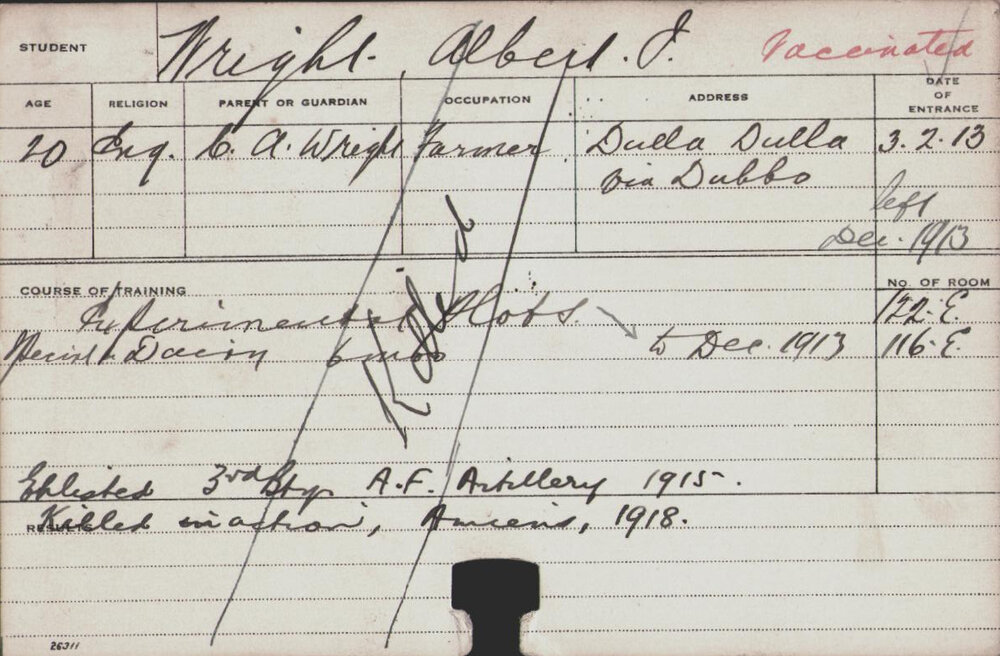 STUDENT Wright, Albert. J. Vaccinated
AGE RELIGION PARENT OR GUARDIAN OCCUPATION ADDRESS DATE OF ENTRANCE
20 Eng. C. A. Wright Farmer Dulla Dulla 3.2.13
via Dubbo
left
Dec. 1913
COURSE OF TRAINING No. OF ROOM
Experimental Plots. 122.E.
Dairy 6 mths to Dec. 1913 116.E.
Enlisted 3rd Bty. A.F. Artillery 1915.
RESULTS Killed in action, Amiens, 1918.
26311